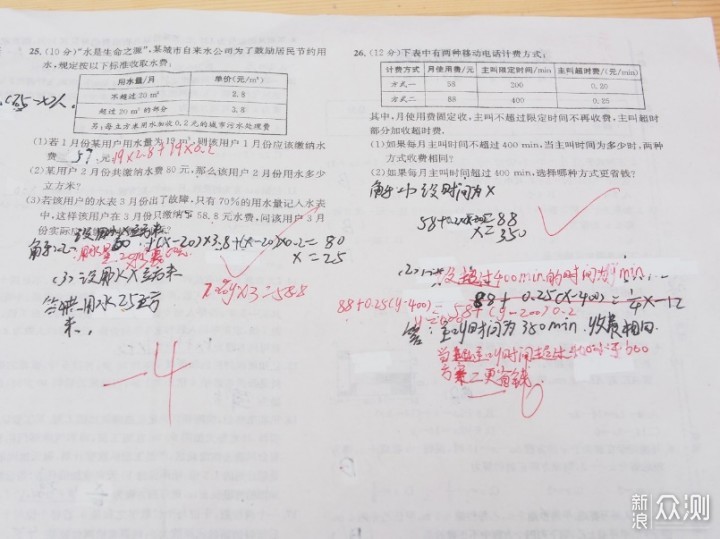 25.(10分)“水是生命之源”,某城市自来水公司为了鼓励居民节约用
水,规定按以下标准收取水费:
用水量/月 单价(元/m³)
不超过20 m³ 2.8
超过20 m³的部分 3.8
另:每立方米用水加收0.2元的城市污水处理费
(1)若1月份某用户用水量为19 m³,则该用户1月份应该缴纳水
费 57 元 19×2.8+19×0.2
(2)某用户2月份共缴纳水费80元,那么该用户2月份用水多少
立方米?
(3)若该用户的水表3月份出了故障,只有70%的用水量记入水表
中,这样该用户在3月份只缴纳了58.8元水费,问该用户3月
份实际应
+(x-20)×3.8+(x-20)×0.2=80
x=25
(3)设用水x立方米
答:
用水25立方
米.
-4
26.(12分)下表中有两种移动电话计费方式:
计费方式 月使用费/元 主叫限定时间/min 主叫超时费/(元/min)
方式一 58 200 0.20
方式二 88 400 0.25
其中,月使用费固定收,主叫不超过限定时间不再收费,主叫超时
部分加收超时费.
(1)如果每月主叫时间不超过400 min,当主叫时间为多少时,两种
方式收费相同?
(2)如果每月主叫时间超过400 min,选择哪种方式更省钱?
解:(1)设时间为x
=88
x=350
设超过400min的时间为
88+0.25(x-400)=
88+0.25(y-400)=58+(y-200)0.2
答:主叫时间为350min.收费相同.
更省钱
新浪 众测